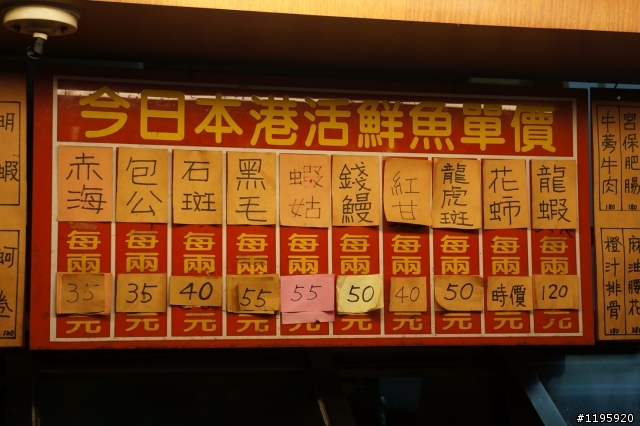 今日本港活鮮魚單價
赤海 包公 石斑 黑毛 蝦姑 錢鰻 紅甘 龍虎斑 花蛳 龍蝦
每兩 每兩 每兩 每兩 每兩 每兩 每兩 每兩 每兩 每兩
35 35 40 55 55 50 40 50 時價 120
元 元 元 元 元 元 元 元 元 元
明蝦
宮保肥腸
180
牛蒡牛肉
180
麻油腰花
180
橙汁排骨
180
#1195920